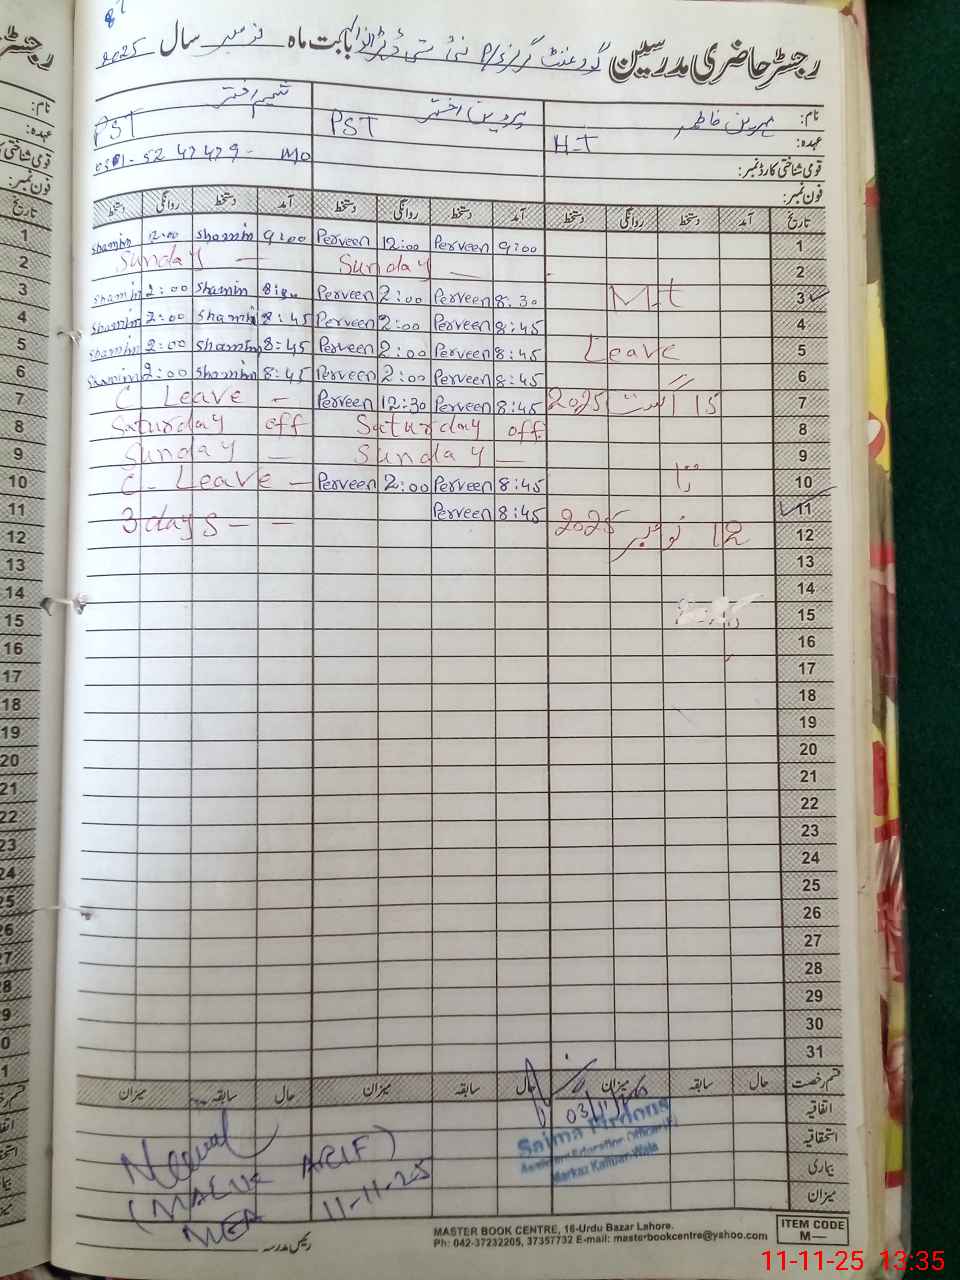 رجسٹر حاضری مدرسین گورنمنٹ گرلز P/ بابت ماہ نومبر سال 2025
نام: مہرین فاطمہ پروین اختر شمیم اختر
عہدہ: H-T PST PST
قومی شناختی کارڈ نمبر:
فون نمبر:
تاریخ آمد دستخط روانگی دستخط آمد دستخط روانگی دستخط آمد دستخط روانگی دستخط
Shamim 2:00 Shamim 9:00 Perveen 12:00 Perveen 9:00 1
Sunday — Sunday — 2
Shamim 2:00 Shamim 8:30 Perveen 2:00 Perveen 8:30 M-t 3
Shamim 2:00 Shamim 8:45 Perveen 2:00 Perveen 8:45 4
Shamim 2:00 Shamim 8:45 Perveen 2:00 Perveen 8:45 Leave 5
Shamim 2:00 Shamim 8:45 Perveen 2:00 Perveen 8:45 6
C Leave — Perveen 12:30 Perveen 8:45 15 اگست 2025 7
Saturday off Saturday off 8
Sunday — Sunday — 9
C- Leave — Perveen 2:00 Perveen 8:45 تا 10
Perveen 8:45 11
3 days — — 12 نومبر 2025 12
13
14
15
16
17
18
19
20
21
22
23
24
25
26
27
28
29
30
31
قسم رخصت حال سابقہ میزان حال سابقہ میزان حال سابقہ میزان
اتفاقیہ
استحقاقیہ
بیماری
میزان
03/11/25
Saima Firdous
Assistant Education Officer (F)
(MALIK ARIF)
MEA
11-11-25
رئیس مدرسہ
MASTER BOOK CENTRE, 16-Urdu Bazar Lahore.
Ph: 042-37232205, 37357732 E-mail: masterbookcentre@yahoo.com
ITEM CODE
M—
11-11-25 13:35